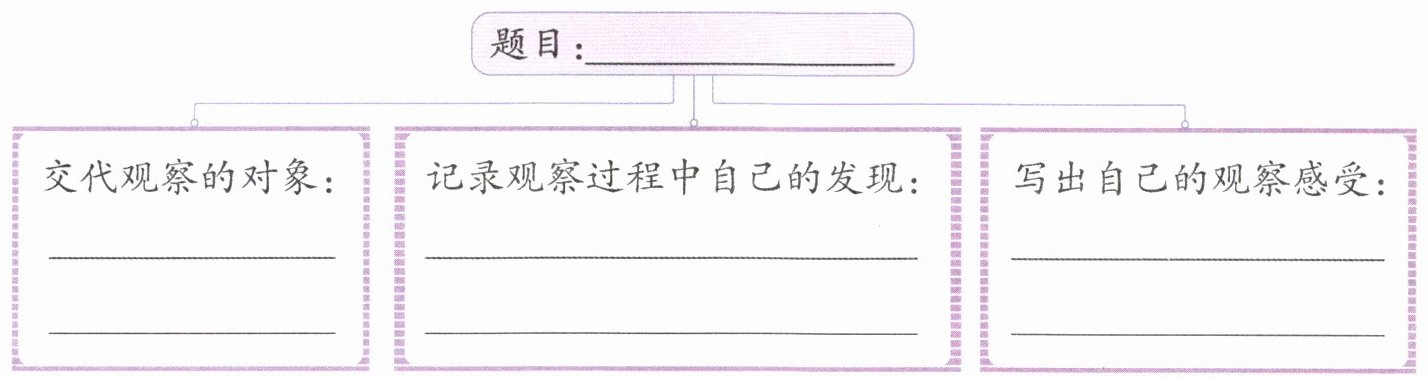 题目:
交代观察的对象:
记录观察过程中自己的发现:
写出自己的观察感受: